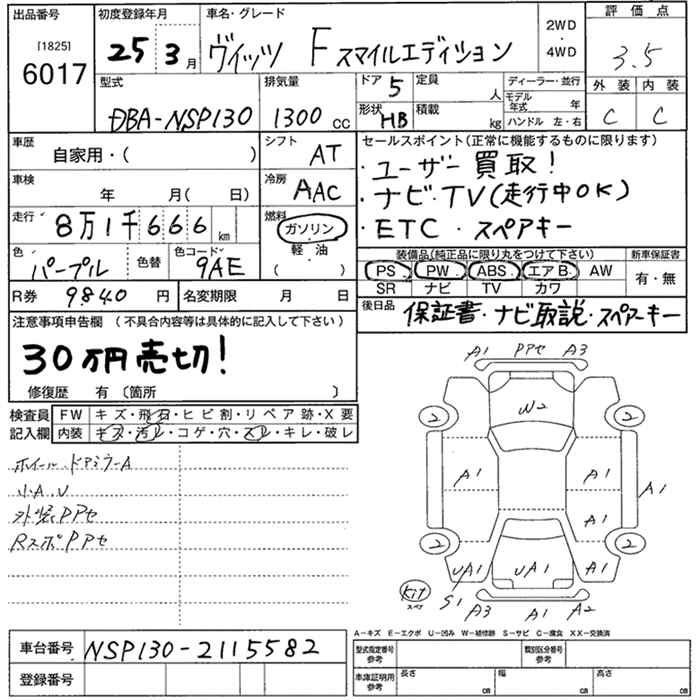 出品番号 初度登録年月 車名・グレード 2WD・4WD 評価点
[1825]
6017 25 3月 ヴィッツ F スマイルエディション 3.5
型式 排気量 ドア 5 定員 人 ディーラー・並行 外装 内装
モデル年式 年
DBA-NSP130 1300cc 形状 HB 積載 kg ハンドル 左・右 C C
車歴 シフト セールスポイント(正常に機能するものに限ります)
自家用・( ) AT ・ユーザー買取!
車検 冷房 ・ナビ・TV(走行中OK)
年 月( 日) AAC
走行 8万1千666km 燃料 ・ETC ・スペアキー
ガソリン
色 色替 色コード 軽油 装備品(純正品に限り丸をつけて下さい) 新車保証書
パープル 9AE ( ) PS PW ABS エアB. AW 有・無
R券 9840円 名変期限 月 日 SR ナビ TV カワ
注意事項申告欄 (不具合内容等は具体的に記入して下さい) 後日品 保証書・ナビ取説・スペアーキー
30万円売切!
修復歴 有〔箇所 〕
検査員 FW キズ・飛石・ヒビ割・リペア跡・X要
記入欄 内装 キズ・汚レ・コゲ・穴・スレ・キレ・破レ
ホイール、ドアミラーA
小A、U
外装PPセ
RスポPPセ
A1 PPセ A3
W2
2 2
A1 A1 A1
A1
2 2
UA1 UA1 A1
Kit
スペ S1 A3 A1 A2
A-キズ E-エクボ U-凹み W-補修跡 S-サビ C-腐食 XX-交換済
車台番号 NSP130-2115582 型式指定番号 参考 類別区分番号 参考
登録番号 車庫証明用 参考 長さ cm 幅 cm 高さ cm